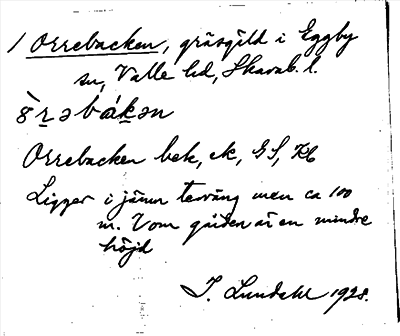 1 Orrebacken, gräsgäld i Eggby
sn, Valle hd, Skarab. l.
Orrebacken bek, ek, GS, Kb
Ligger i jämn terräng men ca 100
m. V om gården är en mindre
höjd
I. Lundahl 1928.